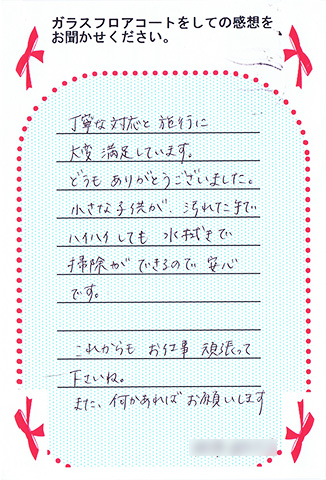 ガラスフロアコートをしての感想を
お聞かせください。
丁寧な対応と施行に
大変満足しています。
どうもありがとうございました。
小さな子供が、汚れた手で
ハイハイしても水拭きで
掃除ができるので安心
です。
これからもお仕事頑張って
下さいね。
また、何かあればお願いします